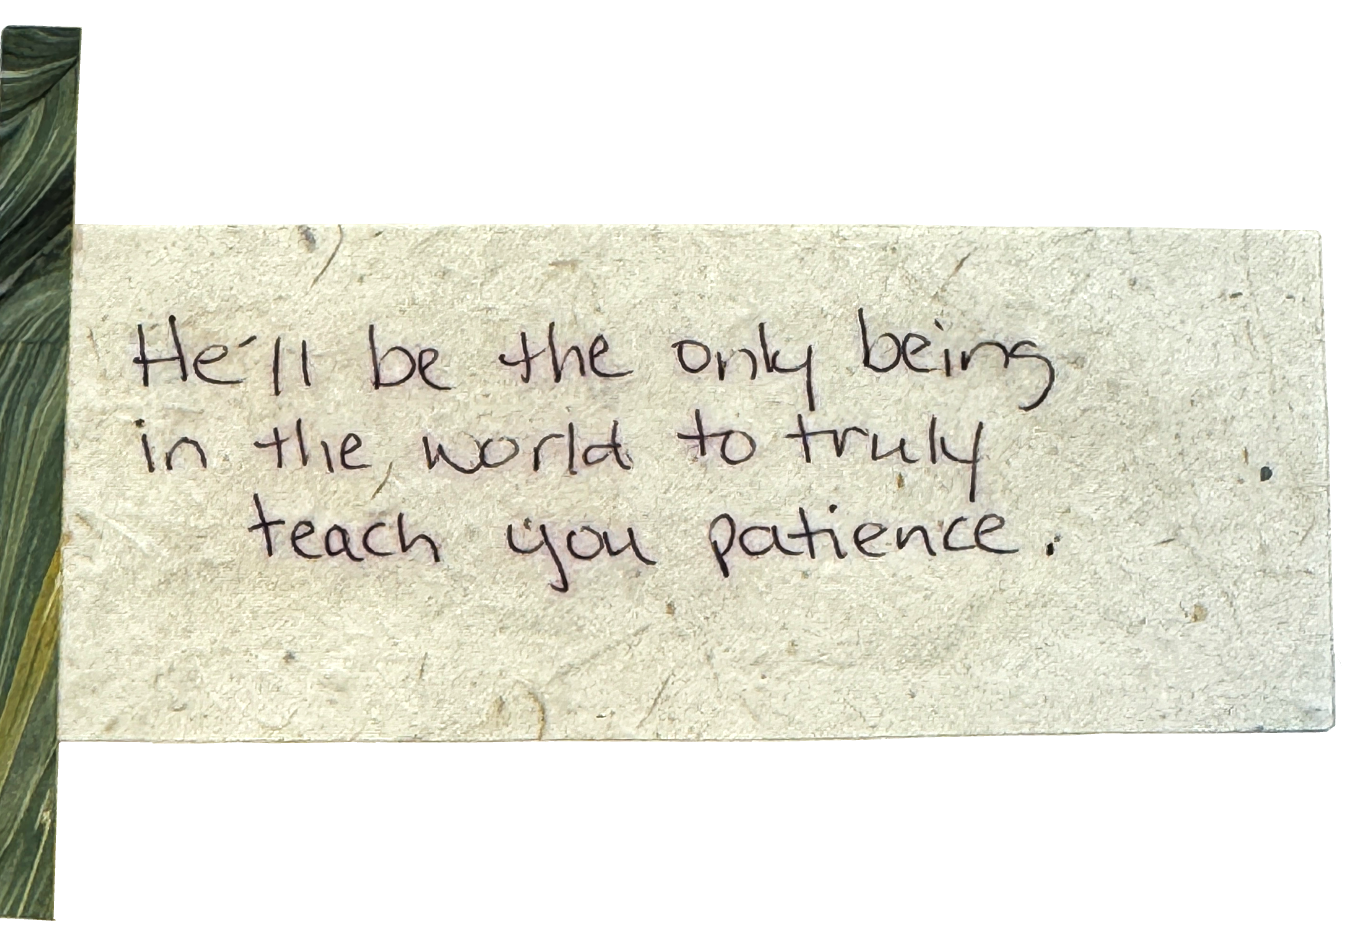 He'll be the only being
in the world to truly
teach you patience.